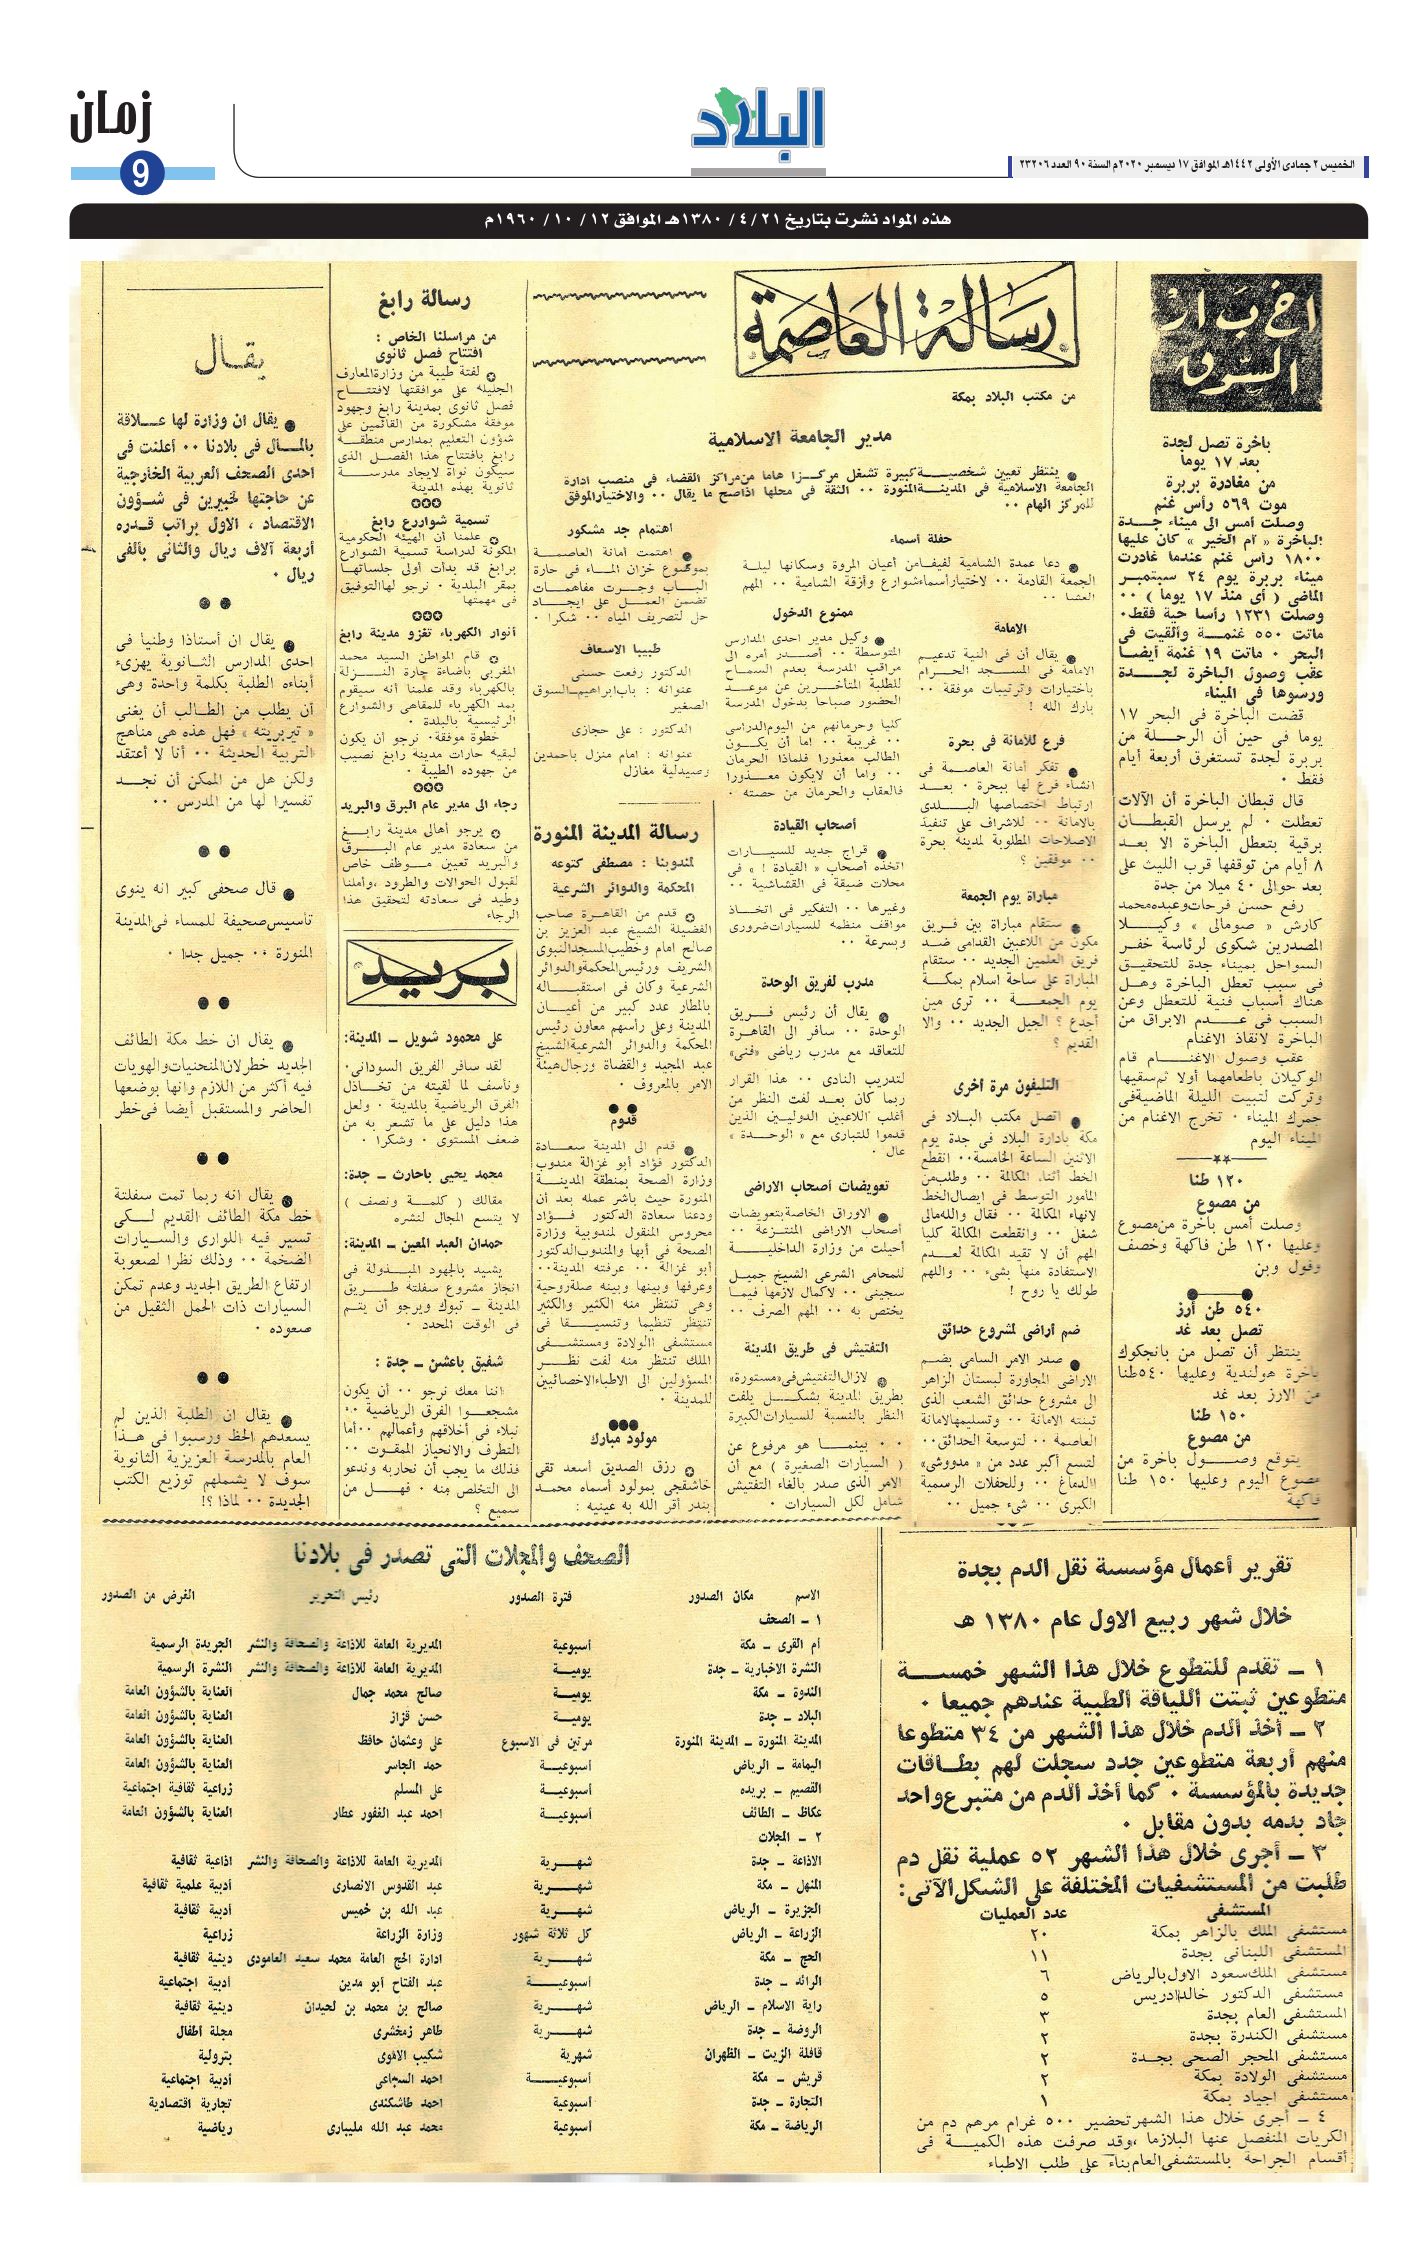 زمان
9
البلاد
الخميس ٢ جمادى الأولى ١٤٤٢هـ الموافق ١٧ ديسمبر ٢٠٢٠م السنة ٩٠ العدد ٢٣٢٠٦
هذه المواد نشرت بتاريخ ٢١ /٤ /١٣٨٠هـ الموافق ١٢ /١٠ /١٩٦٠م
اخبار
السوق
باخرة تصل لجدة
بعد ١٧ يوما
من مغادرة بربرة
موت ٥٦٩ رأس غنم
وصلت أمس الى ميناء جـدة
الباخرة « أم الخير » كان عليها
١٨٠٠ رأس غنم عندما غادرت
ميناء بربرة يوم ٢٤ سبتمبر
الماضى ( أى منذ ١٧ يوما ) ٠٠
وصلت ١٢٣١ رأسا حية فقط٠
ماتت ٥٥٠ غنمـة وألقيت فى
البحر ٠ ماتت ١٩ غنمة أيضـا
عقب وصول الباخرة لجـدة
ورسوها فى الميناء
قضت الباخرة فى البحر ١٧
يوما فى حين أن الرحلـة من
بربرة لجدة تستغرق أربعة أيام
فقط ٠
قال قبطان الباخرة أن الآلات
تعطلت ٠ لم يرسل القبطـان
برقية بتعطل الباخرة الا بعـد
٨ أيام من توقفها قرب الليث على
بعد حوالى ٤٠ ميلا من جدة
رفع حسن فرحات وعبده محمد
كارش « صومالى » وكيـلا
المصدرين شكوى لرئاسة خفر
السواحل بميناء جدة للتحقيـق
فى سبب تعطل الباخرة وهـل
هناك أسباب فنية للتعطل وعن
السبب فى عـدم الابراق من
الباخرة لانقاذ الاغنام
عقب وصول الاغنـام قام
الوكيلان باطعامهما أولا ثم سقيها
وتركت لتبيت الليلة الماضية فى
جمرك الميناء ٠ تخرج الاغنام من
الميناء اليوم
١٢٠ طنا
من مصوع
وصلت أمس باخرة من مصوع
وعليها ١٢٠ طن فاكهة وخصف
وفول وبن
٥٤٠ طن أرز
تصل بعد غد
ينتظر أن تصل من بانجكوك
باخرة هولندية وعليها ٥٤٠ طنا
من الارز بعد غد
١٥٠ طنا
من مصوع
يتوقع وصـول باخرة من
مصوع اليوم وعليها ١٥٠ طنا
فاكهة
رسالة العاصمة
من مكتب البلاد بمكة
مدير الجامعة الاسلامية
ينتظر تعيين شخصيـة كبيرة تشغل مركـزا هاما من مراكز القضاء فى منصب ادارة
الجامعة الاسلامية فى المدينـة المنورة ٠٠ الثقة فى محلها اذا صح ما يقال ٠٠ والاختيار الموفق
للمركز الهام ٠٠
حفلة أسماء
دعا عمدة الشامية لفيفا من أعيان المروة وسكانها ليلـة
الجمعة القادمة ٠٠ لاختيار أسماء شوارع وأزقة الشامية ٠٠ المهم
العشا ٠٠
الامامة
يقال أن فى النية تدعيـم
الامامة فى المسـجد الحرام
باختيارات وترتيبات موفقة ٠٠
بارك الله !
فرع للامانة فى بحرة
تفكر أمانة العاصمـة فى
انشاء فرع لها ببحرة ٠ بعـد
ارتباط اختصاصها البـلدى
بالامانة ٠٠ للاشراف على تنفيـذ
الاصلاحات المطلوبة لمدينة بحرة
٠٠ موفقين ؟
مباراة يوم الجمعة
ستقام مباراة بين فريـق
مكون من اللاعبين القدامى ضـد
فريق العلمين الجديد ٠٠ ستقام
المباراة على ساحة اسلام بمكـة
يوم الجمعـة ٠٠ ترى مين
أجدع ؟ الجيل الجديد ٠٠ والا
القديم ؟
التليفون مرة أخرى
اتصل مكتب البـلاد فى
مكة بادارة البلاد فى جدة يوم
الاثنين الساعة الخامسة٠٠ انقطع
الخط أثناء المكالمة ٠٠ وطلب من
المأمور التوسط فى ايصال الخط
لانهاء المكالمة ٠٠ فقال والله مالى
شغل ٠٠ وانقطعت المكالمة كليا
المهم أن لا تقيد المكالمة لعـدم
الاستفادة منها بشىء ٠٠ واللهم
طولك يا روح !
ضم أراضى لمشروع حدائق
صدر الامر السامى بضـم
الاراضى المجاورة لبستان الزاهر
الى مشروع حدائق الشعب الذى
تبنته الامانة ٠٠ وتسليمها لامانة
العاصمة ٠٠ لتوسعة الحدائق٠٠
لتسع أكبر عدد من « مدووشى»
الادماغ ٠٠ وللحفلات الرسمية
الكبرى ٠٠ شىء جميل ٠٠
ممنوع الدخول
وكيل مدير احدى المدارس
المتوسطة ٠٠ أصـدر أمره الى
مراقب المدرسة بعدم السمـاح
للطلبة المتأخـرين عن موعـد
الحضور صباحا بدخول المدرسة
كليا وحرمانهم من اليوم الدراسى
٠٠ غريبة ٠٠ اما أن يكـون
الطالب معذورا فلماذا الحرمان
٠٠ واما أن لا يكون معـذورا
فالعقاب والحرمان من حصته ٠
أصحاب القيادة
قراج جديد للسيـارات
اتخذه أصحاب « القيادة ! » فى
محلات ضيقة فى القشاشية ٠٠
وغيرها ٠٠ التفكير فى اتخـاذ
مواقف منظمه للسيارات ضرورى
وبسرعة ٠٠
مدرب لفريق الوحدة
يقال أن رئيس فـريق
الوحدة ٠٠ سافر الى القاهـرة
للتعاقد مع مدرب رياضى «فنى»
لتدريب النادى ٠٠ هذا القرار
ربما كان بعـد لفت النظر من
أغلب اللاعبين الدوليـين الذين
قدموا للتبارى مع « الوحـدة »
عال ٠
تعويضات أصحاب الاراضى
الاوراق الخاصة بتعويضات
أصحاب الاراضى المنتـزعة ٠٠
أحيلت من وزارة الداخليـة
للمحامى الشرعى الشيخ جميـل
سجينى ٠٠ لاكمال لازمها فيمـا
يختص به ٠٠ المهم الصرف ٠٠
التفتيش فى طريق المدينة
لازال التفتيش فى «مستورة»
بطريق المدينة بشكـل يلفت
النظر بالنسبة للسيارات الكبيرة
٠٠ بينمـا هو مرفوع عن
( السيارات الصغيرة ) مع أن
الامر الذى صدر بالغاء التفتيش
شامل لكل السيارات ٠
اهتمام جد مشكور
اهتمت أمانة العاصمـة
بموضوع خزان المـاء فى حارة
البـاب وجـرت مفاهمـات
تضمن العمـل على ايجـاد
حل لتصريف المياه ٠٠ شكرا ٠
طبيبا الاسعاف
الدكتور رفعت حسنى
عنوانه : باب ابراهيم ـ السوق
الصغير
الدكتور : على حجازى
عنوانه : امام منزل باحمدين
وصيدلية مغازل
رسالة المدينة المنورة
لمندوبنا : مصطفى كتوعه
المحكمة والدوائر الشرعية
قدم من القاهـرة صاحب
الفضيلة الشيخ عبد العزيز بن
صالح امام وخطيب المسجد النبوى
الشريف ورئيس المحكمة والدوائر
الشرعية وكان فى استقبـاله
بالمطار عدد كبير من أعيـان
المدينة وعلى رأسهم معاون رئيس
المحكمة والدوائر الشرعية الشيخ
عبد المجيد والقضاة ورجال هيئة
الامر بالمعروف ٠
قدوم
قدم الى المدينة سعـادة
الدكتور فؤاد أبو غزالة مندوب
وزارة الصحة بمنطقة المدينـة
المنورة حيث باشر عمله بعد أن
ودعنا سعادة الدكتور فـؤاد
محروس المنقول لمندوبية وزارة
الصحة فى أبها والمندوب الدكتور
أبو غزالة ٠٠ عرفته المدينة٠٠
وعرفها وبينها وبينه صلة روحية
وهى تنتظر منه الكثير والكثير
تنتظر تنظيما وتنسيـقا فى
مستشفى الولادة ومستشـفى
الملك تنتظر منه لفت نظـر
المسؤولين الى الاطباء الاخصائيين
للمدينة ٠
مولود مبارك
رزق الصديق أسعد تقى
خاشقجى بمولود أسماه محمـد
بندر أقر الله به عينيه :
رسالة رابغ
من مراسلنا الخاص :
افتتاح فصل ثانوى
لفتة طيبة من وزارة المعارف
الجليله على موافقتها لافتتـاح
فصل ثانوى بمدينة رابغ وجهود
موفقة مشكورة من القائمين على
شؤون التعليم بمدارس منطقـة
رابغ بافتتاح هذا الفصل الذى
سيكون نواة لايجاد مدرسـة
ثانوية بهذه المدينة
تسمية شوارع رابغ
علمنا أن الهيئه الحكومية
المكونة لدراسة تسمية الشوارع
برابغ قد بدأت أولى جلساتها
بمقر البلدية ٠ نرجو لها التوفيق
فى مهمتها
أنوار الكهرباء تغزو مدينة رابغ
قام المواطن السيد محمد
المغربى باضاءة چارة النـزلة
بالكهرباء وقد علمنا أنه سيقوم
بمد الكهرباء للمقاهى والشوارع
الرئيسية بالبلدة ٠
خطوة موفقة٠ نرجو أن يكون
لبقيه حارات مدينه رابغ نصيب
من جهوده الطيبة ٠
رجاء الى مدير عام البرق والبريد
يرجو أهالى مدينة رابـغ
من سعادة مدير عام البـرق
والبريد تعيين موظف خاص
لقبول الحوالات والطرود ،وأملنا
وطيد فى سعادته لتحقيق هذا
الرجاء
بريد
على محمود شويل ـ المدينة:
لقد سافر الفريق السودانى٠
ونأسف لما لقيته من تخـاذل
الفرق الرياضية بالمدينة ٠ ولعل
هذا دليل على ما تشعر به من
ضعف المستوى ٠ وشكرا ٠
محمد يحيى باحارث ـ جدة:
مقالك ( كلمـة ونصف )
لا يتسع المجال لنشره
حمدان العبد المعين ـ المدينة:
يشيد بالجهود المبـذولة فى
انجاز مشروع سفلتة طـريق
المدينة ـ تبوك ويرجو أن يتـم
فى الوقت المحدد ٠
شفيق باعشن ـ جدة :
اننا معك نرجو ٠٠ أن يكون
مشجعـوا الفرق الرياضية ٠٠
نبلاء فى أخلاقهم وأعمالهم ٠٠أما
التطرف والانحياز الممقوت ٠٠
فذلك ما يجب أن نحاربه وندعو
الى التخلص منه ٠ فهـل من
سميع ؟
يقال
يقال ان وزارة لها عـلاقة
بالمـال فى بلادنا ٠٠ أعلنت فى
احدى الصحف العربية الخارجية
عن حاجتها لخبيرين فى شـؤون
الاقتصاد ، الاول براتب قـدره
أربعة آلاف ريال والثانى بألفى
ريال ٠
يقال ان أستاذا وطنيا فى
احدى المدارس الثـانوية يهزىء
أبناءه الطلبة بكلمة واحدة وهى
أن يطلب من الطـالب أن يغنى
« تيريريته » فهل هذه هى مناهج
التربية الحديثة ٠٠ أنا لا أعتقد
ولكن هل من الممكن أن نجـد
تفسيرا لها من المدرس ٠٠
قال صحفى كبير انه ينوى
تأسيس صحيفة للمساء فى المدينة
المنورة ٠٠ جميل جدا ٠
يقال ان خط مكة الطائف
الجديد خطر لان المنحنيات والهويات
فيه أكثر من اللازم وانها بوضعها
الحاضر والمستقبل أيضا فى خطر
يقال انه ربما تمت سفلتة
خط مكة الطائف القديم لـكى
تسير فيه اللوارى والسيارات
الضخمة ٠٠ وذلك نظرا لصعوبة
ارتفاع الطريق الجديد وعدم تمكن
السيارات ذات الحمل الثقيل من
صعوده ٠
يقال ان الطلبة الذين لم
يسعدهم الحظ ورسبوا فى هـذا
العام بالمدرسة العزيزية الثانوية
سوف لا يشملهم توزيع الكتب
الجديدة ٠٠ لماذا ؟!
تقرير أعمال مؤسسة نقل الدم بجدة
خلال شهر ربيع الاول عام ١٣٨٠ هـ
١ ـ تقدم للتطوع خلال هذا الشهر خمسـة
متطوعين ثبتت اللياقة الطبية عندهم جميعا ٠
٢ ـ أخذ الدم خلال هذا الشهر من ٣٤ متطوعا
منهم أربعة متطوعين جدد سجلت لهم بطـاقات
جديدة بالمؤسسة ٠ كما أخذ الدم من متبرع واحد
جاد بدمه بدون مقابل ٠
٣ ـ أجرى خلال هذا الشهر ٥٢ عملية نقل دم
طلبت من المستشفيات المختلفة على الشكل الآتى:
المستشفى عدد العمليات
مستشفى الملك بالزاهر بمكة ٢٠
المستشفى اللبنانى بجدة ١١
مستشفى الملك سعود الاول بالرياض ٦
مستشفى الدكتور خالد ادريس ٥
المستشفى العام بجدة ٣
مستشفى الكندرة بجدة ٢
مستشفى المحجر الصحى بجـدة ٢
مستشفى الولادة بمكة ٢
مستشفى اجياد بمكة ١
٤ ـ أجرى خلال هذا الشهر تحضير ٥٠٠ غرام مرهم دم من
الكريات المنفصل عنها البلازما ،وقد صرفت هذه الكميـة فى
أقسام الجراحة بالمستشفى العام بناء على طلب الاطباء
الصحف والمجلات التى تصدر فى بلادنا
الاسم مكان الصدور فترة الصدور رئيس التحرير الغرض من الصدور
١ ـ الصحف
أم القرى ـ مكة أسبوعية المديرية العامة للاذاعة والصحافة والنشر الجريدة الرسمية
النشرة الاخبارية ـ جدة يوميـة المديرية العامة للاذاعة والصحافة والنشر النشرة الرسمية
الندوة ـ مكة يوميـة صالح محمد جمال العناية بالشؤون العامة
البلاد ـ جدة يوميـة حسن قزاز العناية بالشؤون العامة
المدينة المنورة ـ المدينة المنورة مرتين فى الاسبوع على وعثمان حافظ العناية بالشؤون العامة
اليمامة ـ الرياض أسبوعيـة حمد الجاسر العناية بالشؤون العامة
القصيم ـ بريده أسبوعيـة على المسلم زراعية ثقافية اجتماعية
عكاظ ـ الطائف أسبوعيـة احمد عبد الغفور عطار العناية بالشؤون العامة
٢ ـ المجلات
الاذاعة ـ جدة شهـرية المديرية العامة للاذاعة والصحافة والنشر اذاعية ثقافية
المنهل ـ مكة شهـرية عبد القدوس الانصارى أدبية علمية ثقافية
الجزيرة ـ الرياض شهـرية عبد الله بن خميس أدبية ثقافية
الزراعة ـ الرياض كل ثلاثة شهور وزارة الزراعة زراعية
الحج ـ مكة شهـرية ادارة الحج العامة محمد سعيد العامودى دينية ثقافية
الرائد ـ جدة أسبوعيـة عبد الفتاح أبو مدين أدبية اجتماعية
راية الاسلام ـ الرياض شهـرية صالح بن محمد بن لحيدان دينية ثقافية
الروضة ـ جدة شهـرية طاهر زمخشرى مجلة أطفال
قافلة الزيت ـ الظهران شهرية شكيب الاموى بترولية
قريش ـ مكة أسبوعيـة احمد السباعى أدبية اجتماعية
التجارة ـ جدة أسبوعية احمد طاشكندى تجارية اقتصادية
الرياضة ـ مكة أسبوعية محمد عبد الله مليبارى رياضية